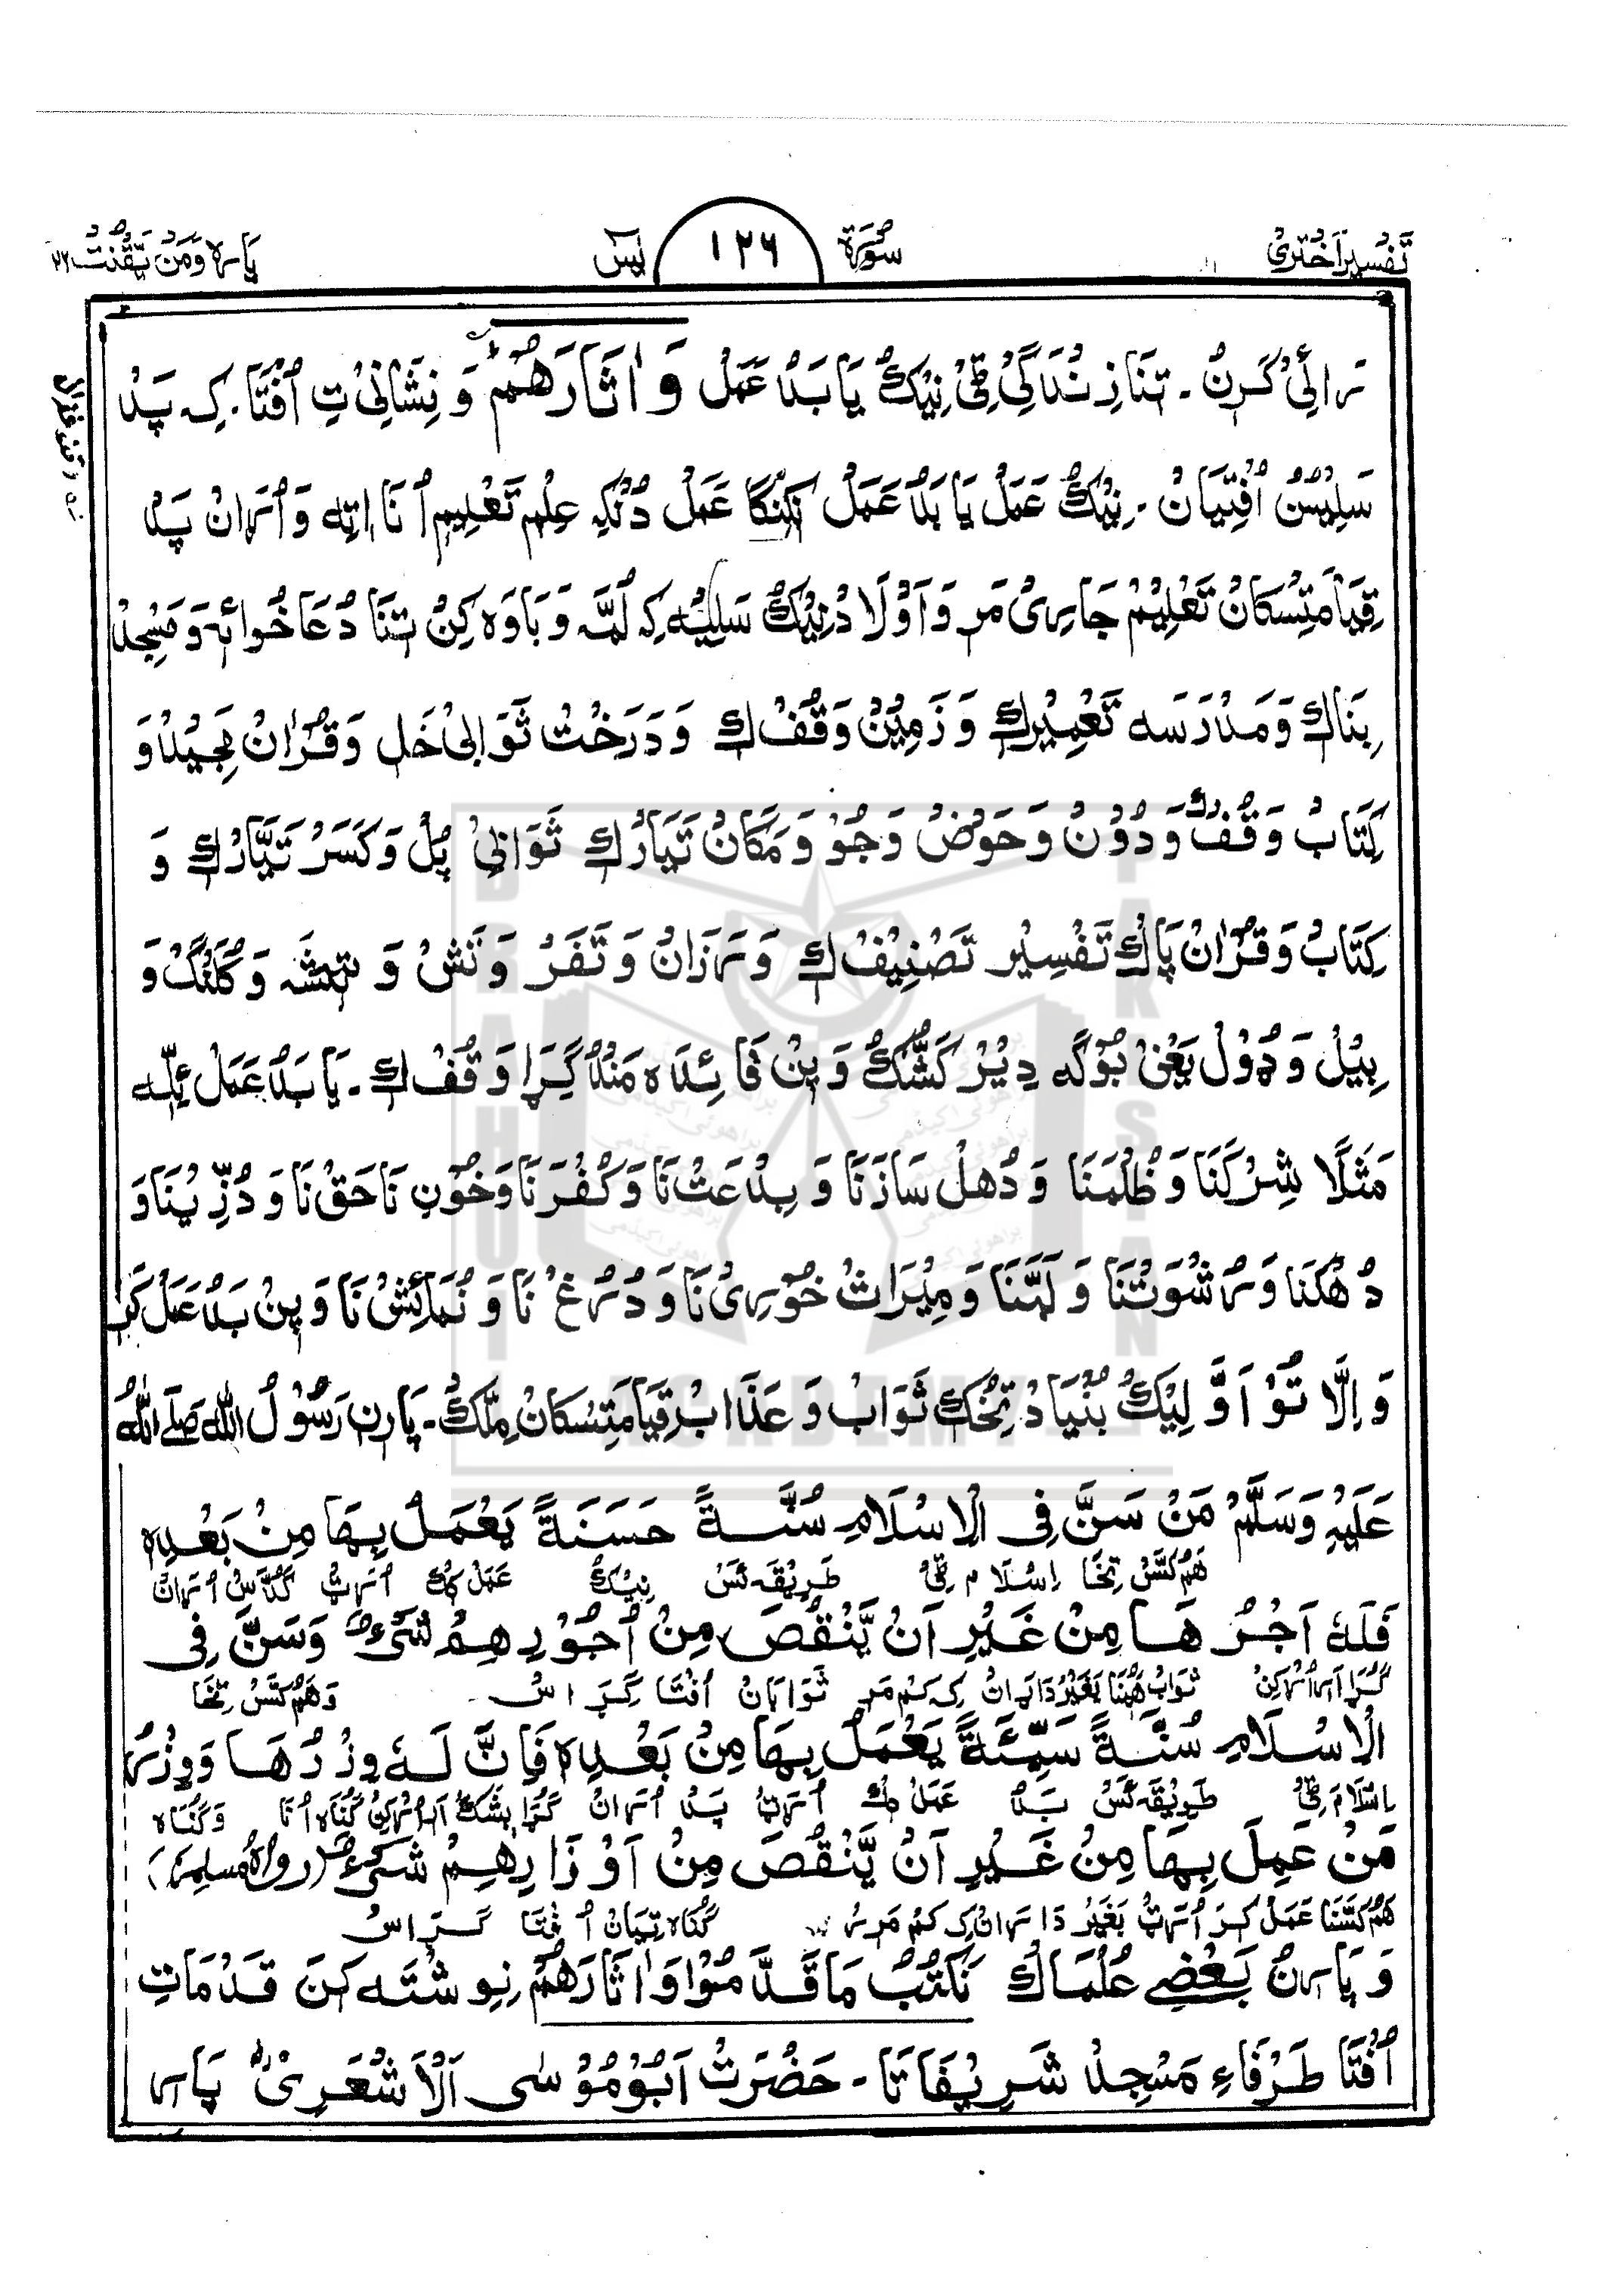 تَفْسِیْرِاَخْتَرِیْ سُوْرَة ١٢٦ یٰسٓ پَارہ وَمَنْ یَّقْنُتْ ٢٢
رَائِیْ کَرِنْ ۔ تِنَا زِنْدَگِیْ ٹِیْ نِیْکْ یَا بَدْ عَمَلْ وَاٰثَارَهُمْ وَ نِشَانِیْ تِ اُفْتَا۔ کِہ پَدْ
سَلِیْسُنْ اُفْتِیَانْ ۔ نِیْکْ عَمَلْ یَا بَدْ عَمَلْ نِکَنْگَا عَمَلْ دُنْکِہ عِلْم تَعْلِیم اُنَا اِتِہ وَ اُرَانْ پَدْ
قِیَامَتِسْکَانْ تَعْلِیْمْ جَارِیْ مَرِ وَ اَوْلَادْ نِیْکْ سَلِیْہ کِہ لُمَّہ وَ بَاوَہ کِنْ تِنَا دُعَا خُوَانِہ وَ مَسْجِدْ
بِنَاکِ وَ مَدْرَسَہ تَعْمِیْرکِ وَ زَمِیْنْ وَقْفْ کِ وَ دَرَخْتْ ثَوَابِیْ خَلِ وَ قُرْاٰنْ مَجِیْدْ وَ
کِتَابْ وَقْفْ وَ دُوْنْ وَ حَوْضْ وَ جُوْ وَ مَکَانْ تَیَارْکِ ثَوَابِیْ پُلْ وَ کَسَرْ تَیَّارْکِ وَ
کِتَابْ وَ قُرْاٰنْ پَاکْ تَفْسِیْر تَصْنِیْفْ کِ وَ رَزَانْ وَ تَفَرْ وَ نَشْ وَ تِیْشَہ وَ کُلَنْگْ وَ
بِیْلْ وَ ڈوْلْ یَعْنِیْ بُوْکَہ دِیْرْ کَشّکْ وَ پِنْ فَائِدَہ مَنْدْ گِرَا وَقْفْ کِ ۔ یَا بَدْ عَمَلْ ئِلِّہ
مَثَلًا شِرْکِنَا وَ ظُلْمِنَا وَ دُهلْ سَازَنَا وَ بِدْعَتْ نَا وَ کُفْرَنَا وَ خُوْنِ نَاحَقْ نَا وَ دُزِّیْنَا وَ
دُهکَنَا وَ رِشْوَتْنَا وَ لَبَّنَا وَ مِیْرَاثْ خُوْرِیْ نَا وَ دُرُغْ نَا وَ نُمَائِشْ نَا وَ پِنْ بَدْ عَمَلْ کَرِ
وَ اِلَّا تُوْ اَوَّ لِیْکْ بُنْیَادْ تِخُکْ ثَوَابْ وَ عَذَابْ قِیَامَتِسْکَانْ مِلِّکْ ۔ پَارِن رَسُوْلُ اللّٰهِ صَلَّے اللّٰهُ
عَلَیْہِ وَسَلَّمْ مَنْ سَنَّ فِی الْاِسْلَامِ سُنَّةً حَسَنَةً یَعْمَلُ بِهَا مِنْ بَعْدِهٖ
هَمْ کَسَّسْ تِخَا اِسْلَام ٹِیْ طَرِیْقَہ ئَسْ نِیْکْ عَمَلْ کِکْ اُرَٹْ گُدَّسْ اُرَانْ
فَلَهٗ اَجْرُهَا مِنْ غَیْرِ اَنْ یَّنْقُصَ مِنْ اُجُوْرِهِمْ شَیْءٌ وَسَنَّ فِی
گُڑَا اُرَکِنْ ثَوَابْ هَمُنَا بَغَیْرْ دَارَانْ کِہ کَمْ مَرِ ثَوَابَانْ اُفْتَا گِرَاسْ وَ هَمْ کَسَّسْ تِخَا
الْاِسْلَامِ سُنَّةً سَیِّئَةً یَعْمَلُ بِهَا مِنْ بَعْدِهٖ فَاِنَّ لَهٗ وِزْرُهَا وَوِزْرَ
اِسْلَام ٹِیْ طَرِیْقَہ ئَسْ بَدْ عَمَلْ کِکْ اُرَٹْ پَدْ اُرَانْ گُڑَا بِشَکْ اُرْکِنْ گُنَاہ اُنَا وَ گُنَاہ
مَنْ عَمِلَ بِهَا مِنْ غَیْرِ اَنْ یَّنْقُصَ مِنْ اَوْزَارِهِمْ شَیْءٌ (رواه مسلم)
هَمْ کَسَّنَا عَمَلْ کَرِ اُرَٹْ بَغَیْرْ دَارَانْ کِہ کَمْ مَرِ گُنَاہ تِیَانْ اُفْتَا گِرَاسْ
وَ پَارِنْ بَعْضِے عُلَمَاکْ نَکْتُبُ مَا قَدَّمُوْا وَاٰثَارَهُمْ نِوِشْتَہ کِنَ قَدَمَاتِ
اُفْتَا طَرْفَاءِ مَسْجِدْ شَرِیْفَاتَا ۔ حَضْرَتْ اَبُوْمُوْسٰی اَلْاَشْعَرِیْ پَارِ